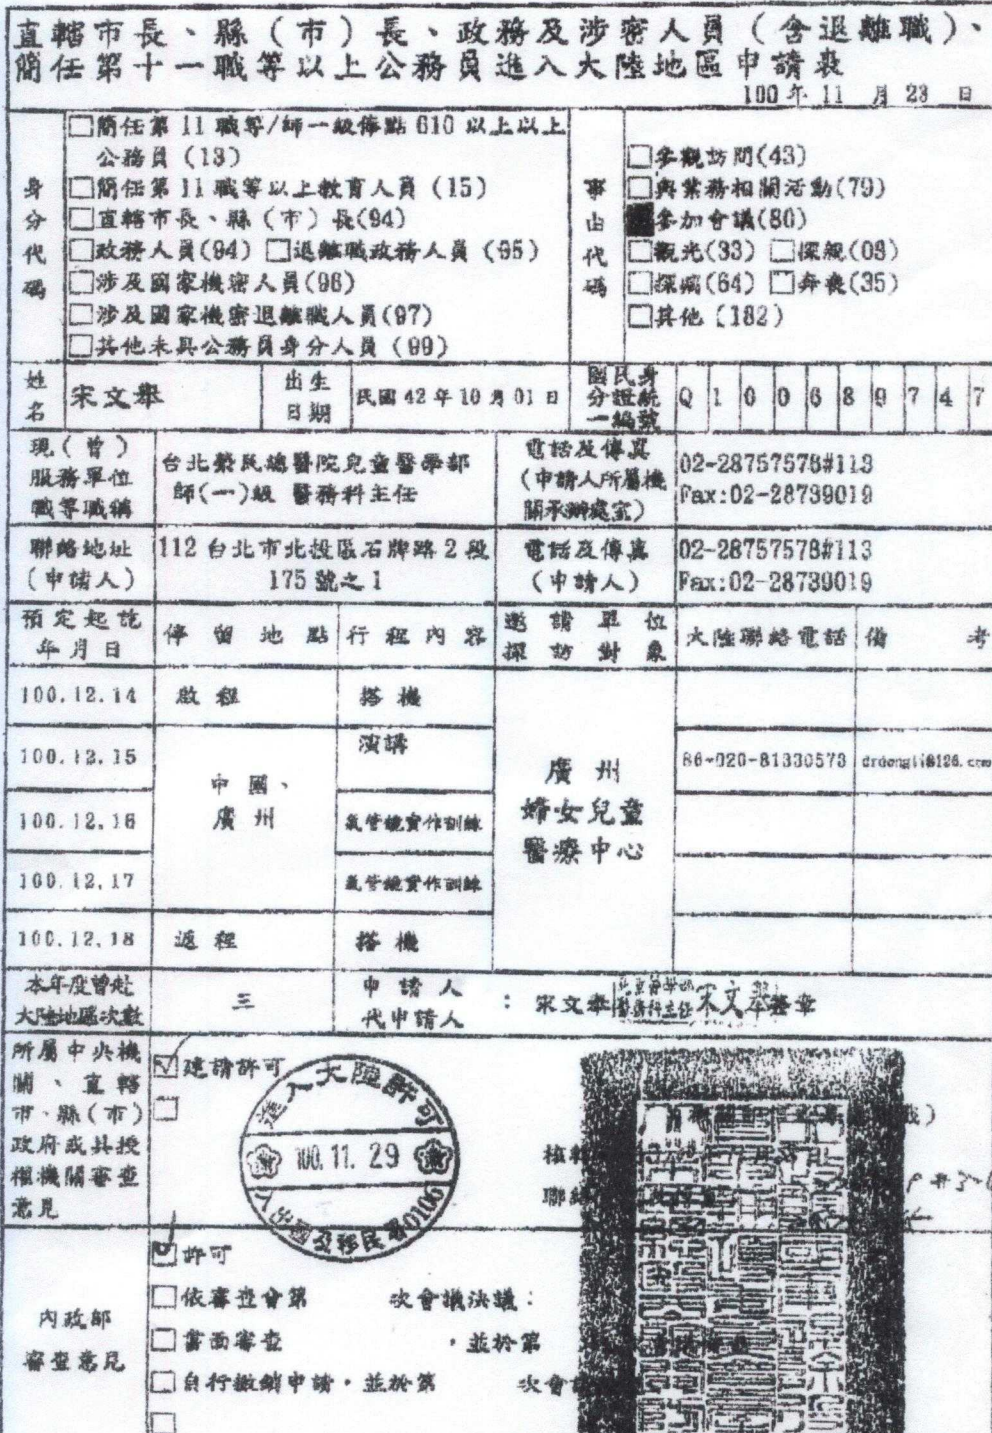 直轄市長、縣（市）長、政務及涉密人員（含退離職）、
簡任第十一職等以上公務員進入大陸地區申請表
100 年 11 月 23 日
身分代碼
□簡任第 11 職等/師一級俸點 610 以上以上
公務員（13）
□簡任第 11 職等以上教育人員（15）
□直轄市長、縣（市）長(94)
□政務人員(94) □退離職政務人員（95）
□涉及國家機密人員(96)
□涉及國家機密退離職人員(97)
□其他未具公務員身分人員（99）
事由代碼
□參觀訪問(43)
□與業務相關活動(79)
■參加會議(80)
□觀光(33) □探親(03)
□探病(64) □奔喪(35)
□其他（182）
姓名
宋文舉
出生
日期
民國 42 年 10 月 01 日
國民身
分證統
一編號
Q 1 0 0 6 8 9 7 4 7
現（曾）
服務單位
職等職稱
台北榮民總醫院兒童醫學部
師(一)級 醫務科主任
電話及傳真
（申請人所屬機
關承辦處室）
02-28757578#113
Fax:02-28739019
聯絡地址
（申請人）
112 台北市北投區石牌路 2 段
175 號之 1
電話及傳真
（申請人）
02-28757578#113
Fax:02-28739019
預定起訖
年月日
停留地點
行程內容
邀請單位
探訪對象
大陸聯絡電話
備考
100.12.14
啟程
搭機
100.12.15
演講
86-020-81330573
100.12.16
氣管鏡實作訓練
100.12.17
氣管鏡實作訓練
中國、
廣州
廣州
婦女兒童
醫療中心
100.12.18
返程
搭機
本年度曾赴
大陸地區次數
三
申請人
代申請人
：宋文舉 宋文舉 簽章
所屬中央機
關、直轄
市、縣（市）
政府或其授
權機關審查
意見
☑建請許可
□
進入大陸許可
100.11.29
入出國及移民署0106
內政部
審查意見
☑許可
□依審查會第 次會議決議：
□書面審查 ，並於第
□自行撤銷申請，並於第 次會
□